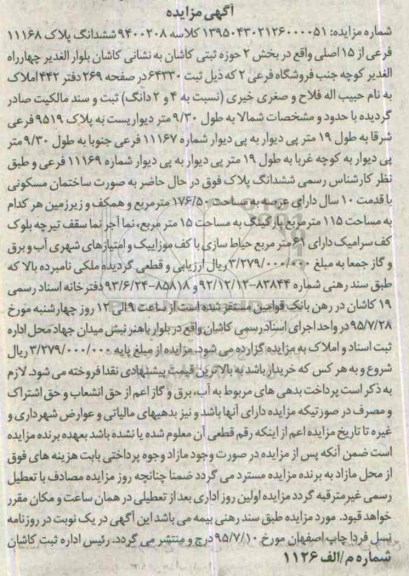 آگهی مزایده
شماره مزایده: ۱۳۹۵۰۴۳۰۲۱۲۶۰۰۰۰۵۱ کلاسه ۹۴۰۰۲۰۸ ششدانگ پلاک ۱۱۱۶۸
فرعی از ۱۵ اصلی واقع در بخش ۲ حوزه ثبتی کاشان به نشانی کاشان بلوار الغدیر چهارراه
الغدیر کوچه جنب فروشگاه فرعی ۲ که ذیل ثبت ۶۴۳۳۰ در صفحه ۲۶۹ دفتر ۴۴۲ املاک
به نام حبیب اله فلاح و صغری خیری (نسبت به ۴ و ۲ دانگ) ثبت و سند مالکیت صادر
گردیده با حدود و مشخصات شمالا به طول ۹/۳۰ متر دیواریست به پلاک ۹۵۱۹ فرعی
شرقا به طول ۱۹ متر پی دیوار به پی دیوار شماره ۱۱۱۶۷ فرعی جنوبا به طول ۹/۳۰ متر
پی دیوار به کوچه غربا به طول ۱۹ متر پی دیوار به پی دیوار شماره ۱۱۱۶۹ فرعی و طبق
نظر کارشناس رسمی ششدانگ پلاک فوق در حال حاضر به صورت ساختمان مسکونی
با قدمت ۱۰ سال دارای عرصه به مساحت ۱۷۶/۵۰ متر مربع و همکف و زیرزمین هر کدام
به مساحت ۱۱۵ متر مربع پارکینگ به مساحت ۱۵ متر مربع، نما آجر نما سقف تیرچه بلوک
کف سرامیک دارای ۶۱ متر مربع حیاط سازی با کف موزاییک و امتیازهای شهری آب و برق
و گاز جمعا به مبلغ ۳/۲۷۹/۰۰۰/۰۰۰ ریال ارزیابی و قطعی گردیده ملکی نامبرده بالا که
طبق سند رهنی شماره ۸۳۸۴۴-۹۲/۱۲/۱۲ و ۸۵۸۱۸-۹۳/۶/۲۴ دفترخانه اسناد رسمی
۱۹ کاشان در رهن بانک قوامین مستقر شده است از ساعت ۹ الی ۱۲ روز چهارشنبه مورخ
۹۵/۷/۲۸ در واحد اجرای اسناد رسمی کاشان واقع در بلوار باهنر نبش میدان جهاد محل اداره
ثبت اسناد و املاک به مزایده گزارده می شود. مزایده از مبلغ پایه ۳/۲۷۹/۰۰۰/۰۰۰ ریال
شروع و به هر کس که خریدار باشد به بالاترین قیمت پیشنهادی نقدا فروخته می شود. لازم
به ذکر است پرداخت بدهی های مربوط به آب، برق و گاز اعم از حق انشعاب و حق اشتراک
و مصرف در صورتیکه مزایده دارای آنها باشد و نیز بدهیهای مالیاتی و عوارض شهرداری و
غیره تا تاریخ مزایده اعم از اینکه رقم قطعی آن معلوم شده یا نشده باشد بعهده برنده مزایده
است ضمن آنکه پس از مزایده در صورت وجود مازاد وجوه پرداختی بابت هزینه های فوق
از محل مازاد به برنده مزایده مسترد می گردد ضمنا چنانچه روز مزایده مصادف با تعطیل
رسمی غیر مترقبه گردد مزایده اولین روز اداری بعد از تعطیلی در همان ساعت و مکان مقرر
خواهد قبود. مورد مزایده طبق سند رهنی بیمه می باشد این آگهی در یک نوبت در روزنامه
نسل فردا چاپ اصفهان مورخ ۹۵/۷/۱۰ درج و منتشر می گردد. رئیس اداره ثبت کاشان
شماره م/الف ۱۱۲۶